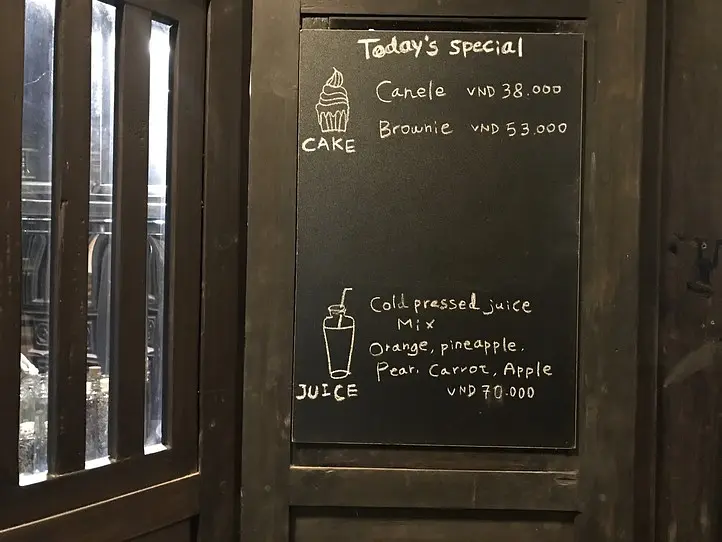 Today's special
Canele VND 38.000
Brownie VND 53.000
CAKE
Cold pressed juice
Mix
Orange, pineapple.
Pear. Carrot, Apple
VND 70.000
JUICE